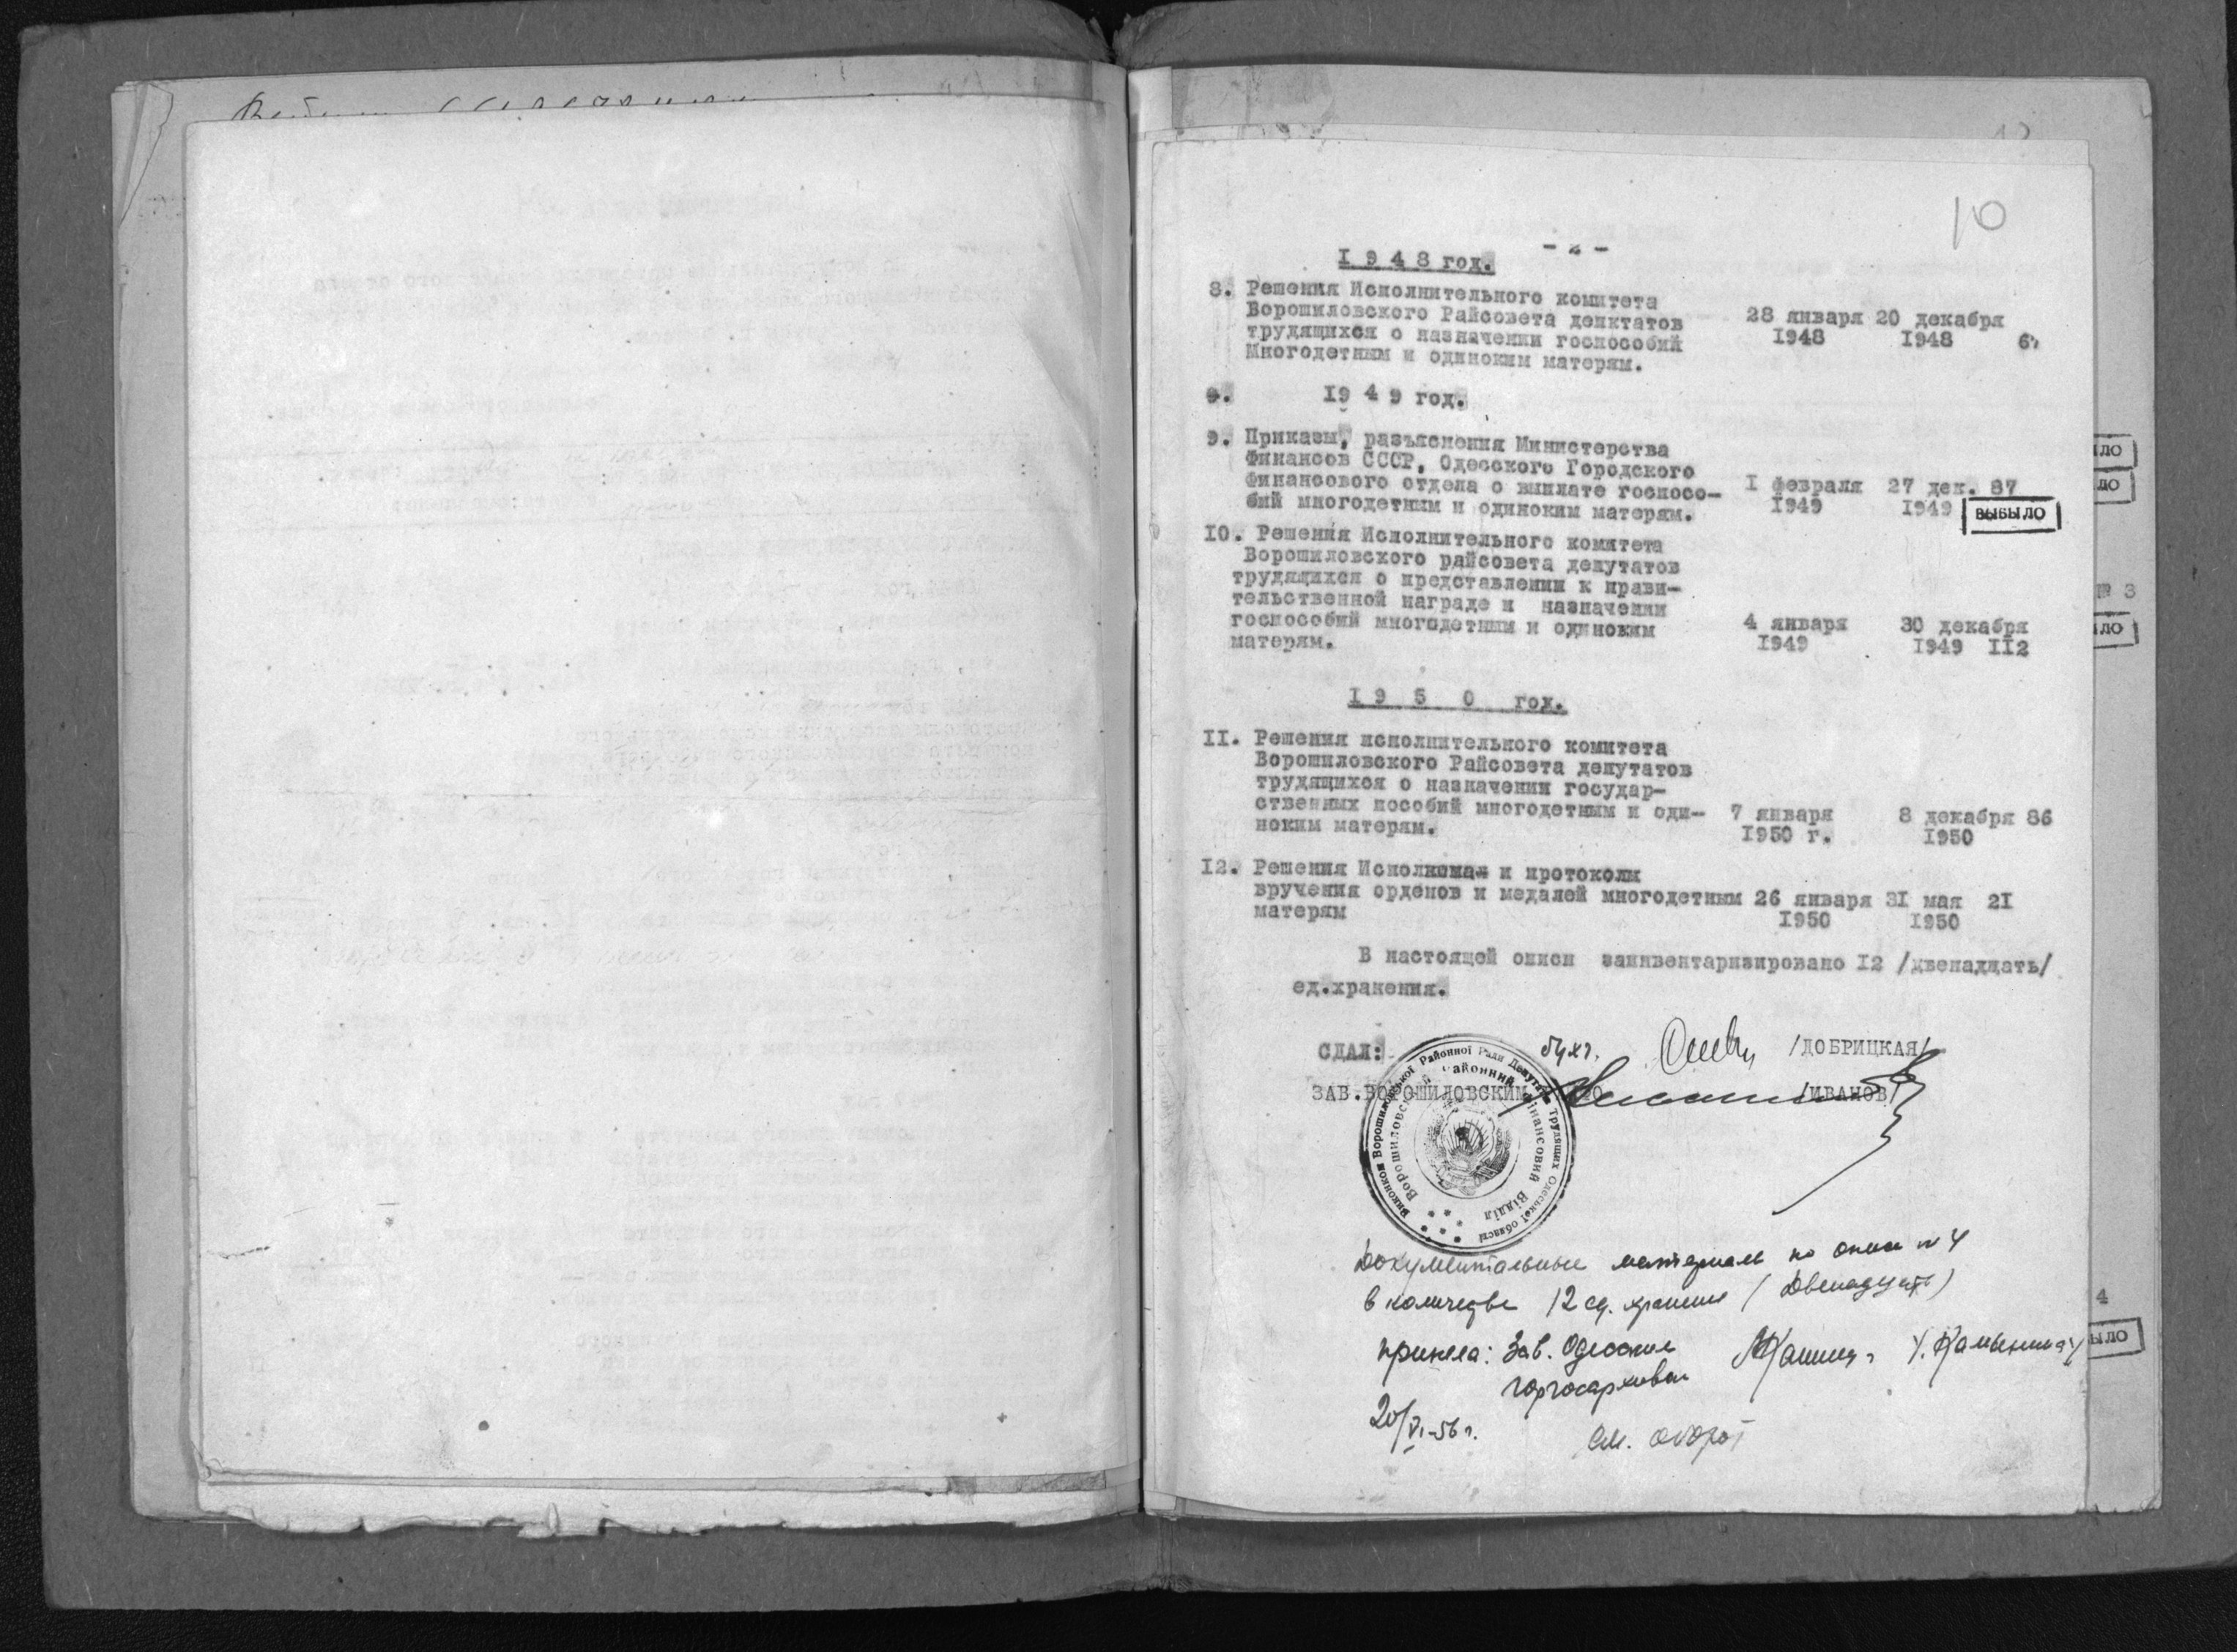 10
- 2 -
1 9 4 8 год.
8. Решения Исполнительного комитета
Ворошиловского Райсовета депктатов 28 января 20 декабря
трудящихся о назначении госпособий 1948 1948
Многодетным и одиноким матерям.
9. 19 4 9 год.
9. Приказы, разъяснения Министерства
Финансов СССР, Одесского Городского
Финансового отдела о выплате госпосо- I февраля 27 дек. 87
бий многодетным и одиноким матерям. 1949 1949
ВЫБЫЛО
IO. Решения Исполнительного комитета
Ворошиловского райсовета депутатов
трудящихся о представлении к прави-
тельственной награде и назначении
госпособий многодетным и одиноким 4 января 30 декабря
матерям. 1949 1949 II2
I 9 5 0 год.
II. Решения исполнительного комитета
Ворошиловского Райсовета депутатов
трудящихся о назначении государ-
ственных пособий многодетным и оди- 7 января 8 декабря 86
ноким матерям. 1950 г. 1950
I2. Решения и протоколы
вручения орденов и медалей многодетным 26 января 3I мая 2I
матерям 1950 1950
В настоящей описи заинвентаризировано I2 /двенадцать/
ед.хранения.
СДАЛ: бухг. /ДОБРИЦКАЯ/
ЗАВ.ВОРОШИЛОВСКИМ /ИВАНОВ/
Виконком Ворошиловської Районної Ради Депутатів Трудящих Одеської області
Ворошиловський Районний Фінансовий Відділ
Документальные материалы по описи № 4
в количестве 12 ед. хранения (двенадцать)
приняла: Зав. Одесским
горгосархивом
20/VI-56 г.
см. оборот
№ 3
4